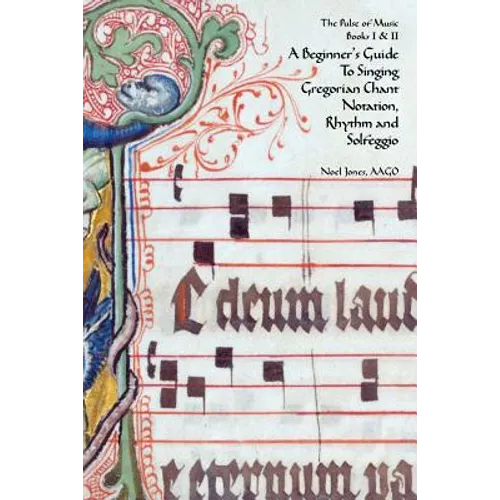 The Pulse of Music
Books I & II
A Beginner's Guide
To Singing
Gregorian Chant
Notation,
Rhythm and
Solfeggio
Noel Jones, AAGO
deum laud
e eternum pa